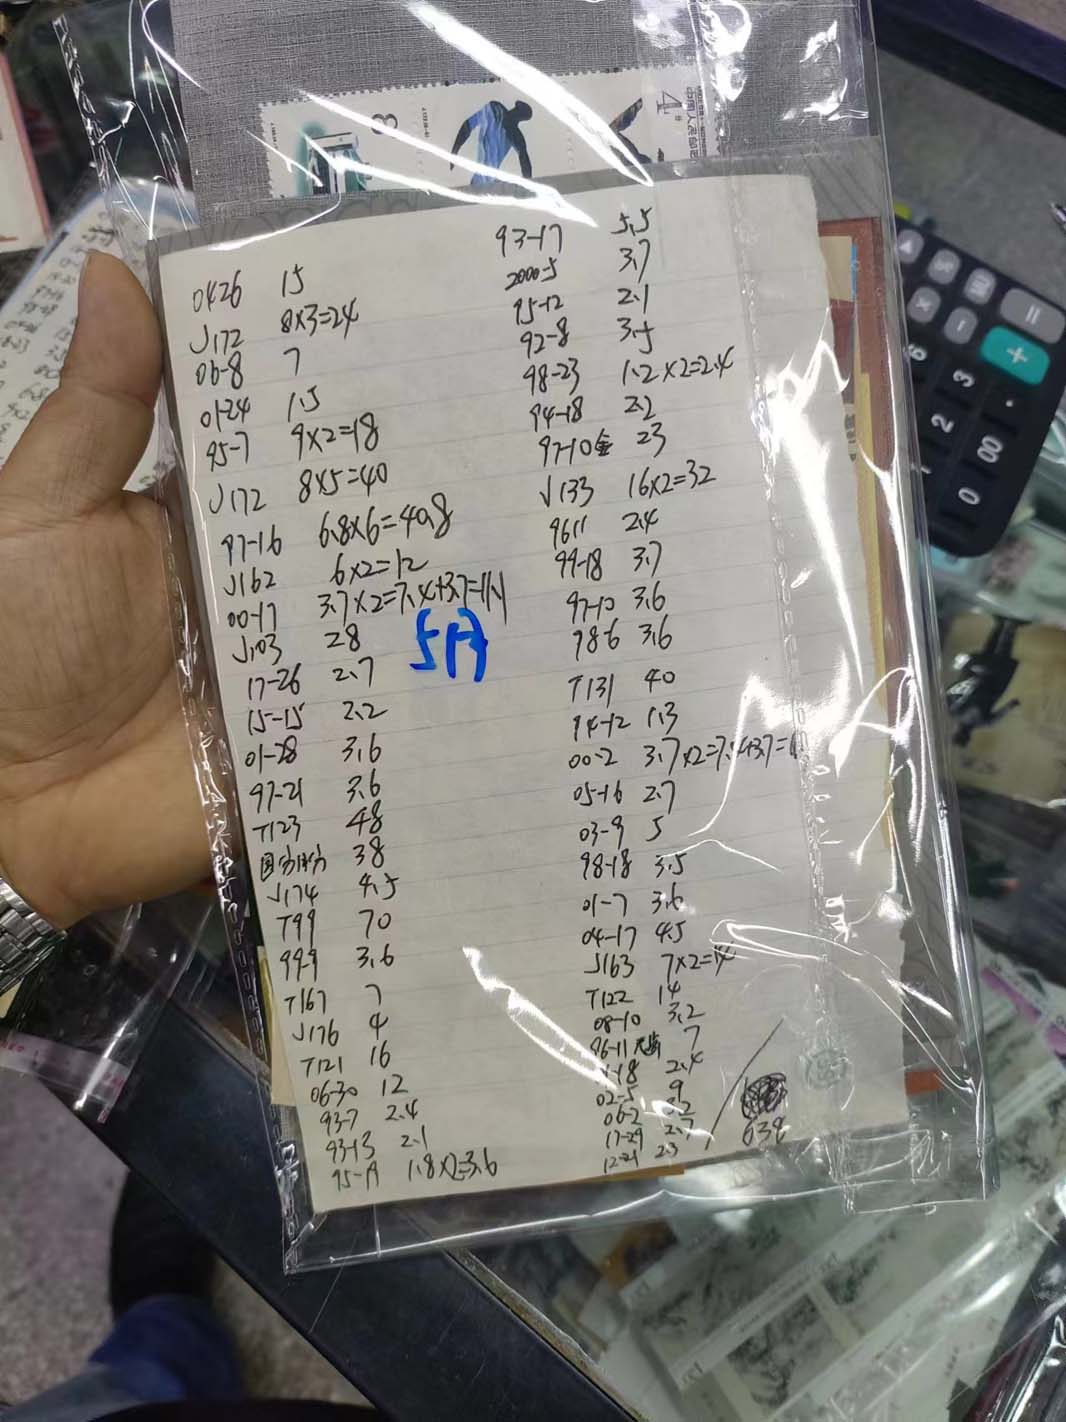 0426 15
J172 8×3=24
06-8 7
01-24 1.5
95-7 9×2=18
J172 8×5=40
97-16 6.8×6=40.8
J162 6×2=12
00-17 3.7×2=7.4+3.7=11.1
J103 28
17-26 2.7
15-15 2.2
01-28 3.6
97-21 3.6
T123 48
38
J174 4.5
T99 70
99-9 3.6
T167 7
J176 4
T121 16
06-30 12
93-7 2.4
93-13 2.1
95-19 1.8×2=3.6
93-17 5.5
2000-5 3.7
95-12 2.1
92-8 3.5
98-23 1.2×2=2.4
94-18 2.2
97-10金 23
J133 16×2=32
9611 2.4
99-18 3.7
97-10 3.6
98-6 3.6
T131 40
94-12 1.3
00-2 3.7×2=7.4+3.7=
05-16 2.7
03-9 5
98-18 3.5
01-7 3.6
04-17 4.5
J163 7×2=14
T122 14
08-10 3.2
96-11 7
1-18 2.4
02-5 9
06-2
17-29 2.7
12-21 2.3
638
3
4
00
0
2
3
6